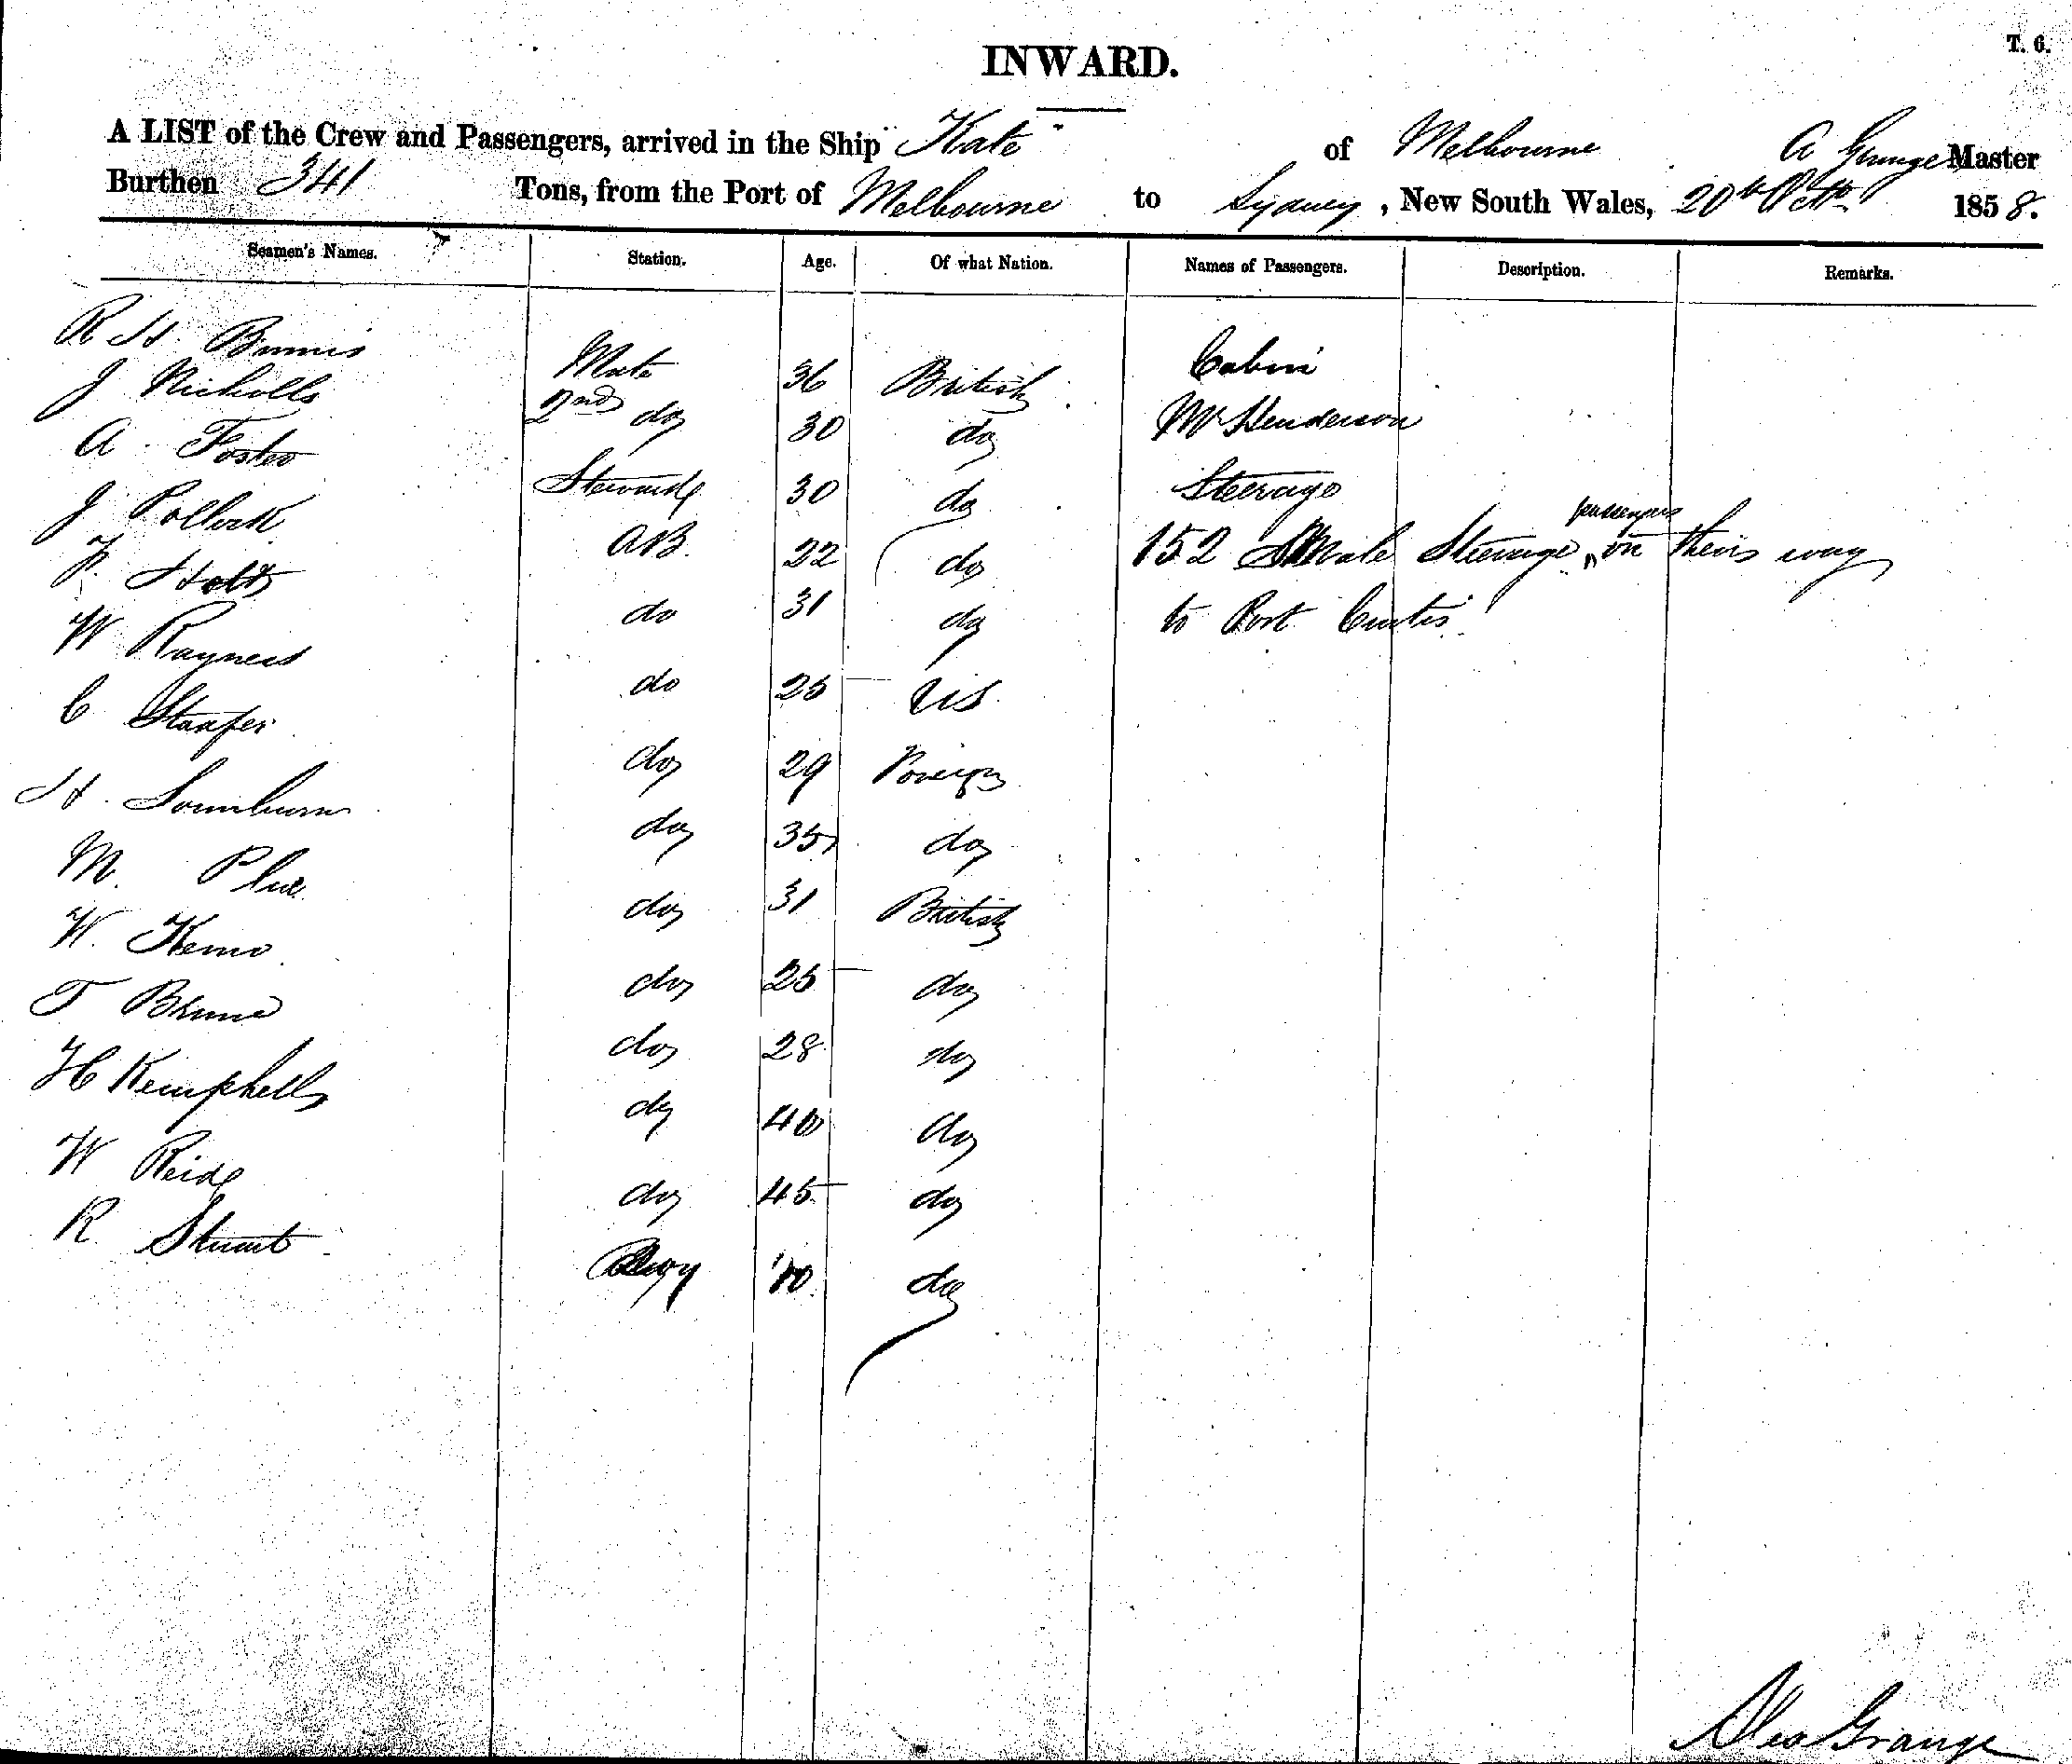 T. 6.
INWARD.
A LIST of the Crew and Passengers, arrived in the Ship "Kate" of Melbourne A Grange Master
Burthen 341 Tons, from the Port of Melbourne to Sydney, New South Wales, 20th Octr 1858.
Seamen's Names. Station. Age. Of what Nation. Names of Passengers. Description. Remarks.
R H Mate 36 British Cabin
J Nicholls 2nd do 30 do Mr Henderson
A Foster Steward 30 do Steerage
J Pollock AB. 22 do 152 Male Steerage passengers on their way
F. Holt do 31 do to Port Curtis
W Rayner do 25 US
C do 29 Foreign
H. do 35 do
M. do 31 British
W. Kemo do 25 do
T do 28 do
H C Kemphell do 40 do
W Reid do 45 do
R Stuart Boy do
Alex Grange